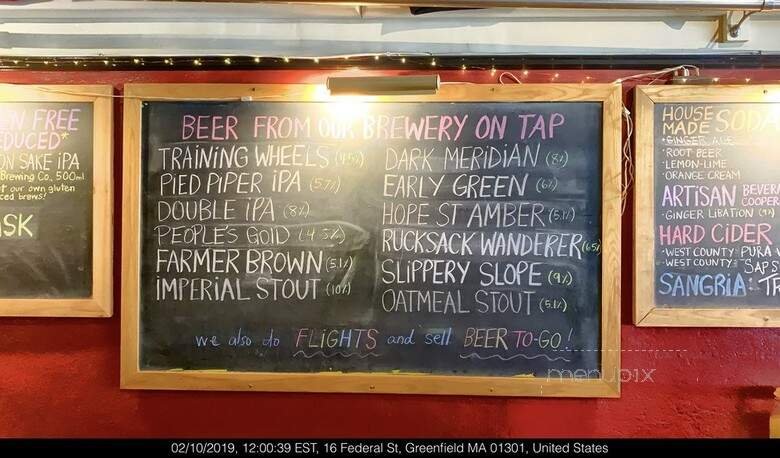 EN FREE
EDUCED*
ON SAKE IPA
Brewing Co, 500ml
our own gluten
ced brews!
ASK
BEER FROM OUR BREWERY ON TAP
TRAINING WHEELS (4.5%)
PIED PIPER IPA (5.7%)
DOUBLE IPA (8%)
PEOPLE'S GOLD (4.5%)
FARMER BROWN (5.1%)
IMPERIAL STOUT (10%)
DARK MERIDIAN (8%)
EARLY GREEN (6%)
HOPE ST AMBER (5.1%)
RUCKSACK WANDERER (6.5%)
SLIPPERY SLOPE (9%)
OATMEAL STOUT (5.1%)
we also do FLIGHTS and sell BEER TO-GO!
HOUSE MADE SODA
•GINGER ALE
•ROOT BEER
•LEMON-LIME
•ORANGE CREAM
ARTISAN BEVERA
COOPER
•GINGER LIBATION (9%)
HARD CIDER
•WEST COUNTY: PURA V
•WEST COUNTY: SAPS
SANGRIA: TR
menupix
02/10/2019, 12:00:39 EST, 16 Federal St, Greenfield MA 01301, United States